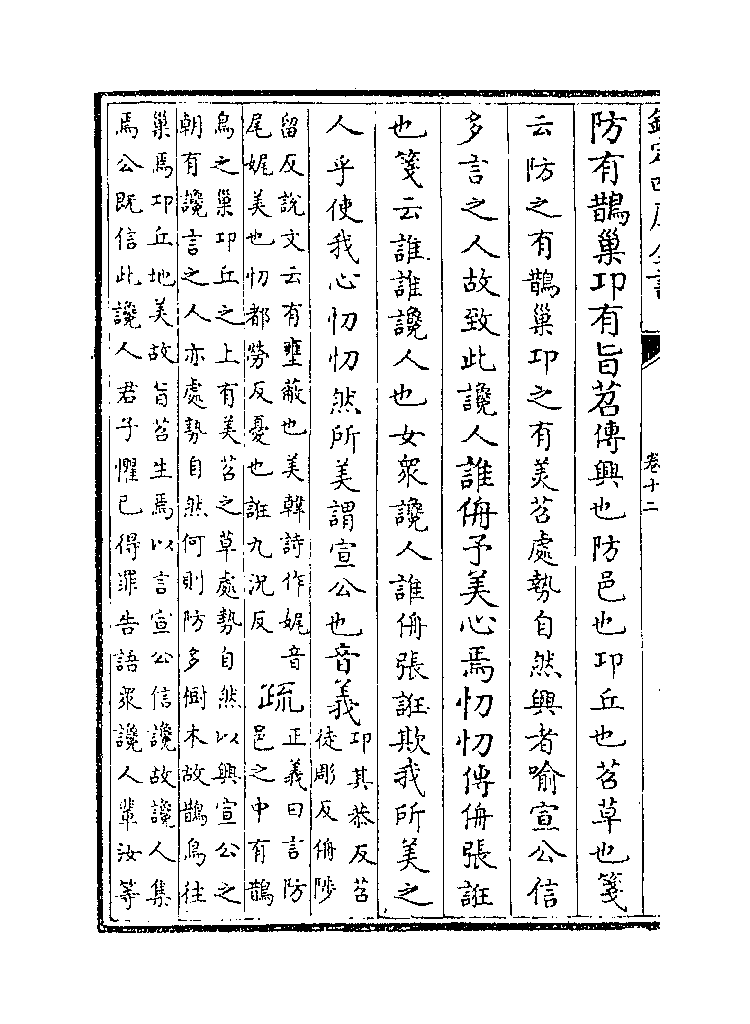 欽定四庫全書
卷十二
防有鵲巢卭有旨苕傳興也防邑也卭丘也苕草也箋
云防之有鵲巢卭之有美苕處勢自然興者喻宣公信
多言之人故致此讒人誰侜予美心焉忉忉傳侜張誑
也箋云誰誰讒人也女衆讒人誰侜張誑欺我所美之
人乎使我心忉忉然所美謂宣公也音義
卭其恭反苕
徒彫反侜陟
留反説文云有壅蔽也美韓詩作娓音
尾娓美也忉都勞反憂也誑九況反
疏
正義曰言防
邑之中有鵲
鳥之巢卭丘之上有美苕之草處勢自然以興宣公之
朝有讒言之人亦處勢自然何則防多樹木故鵲鳥往
巢焉卭丘地美故旨苕生焉以言宣公信讒故讒人集
焉公既信此讒人君子懼已得罪告語衆讒人輩汝等